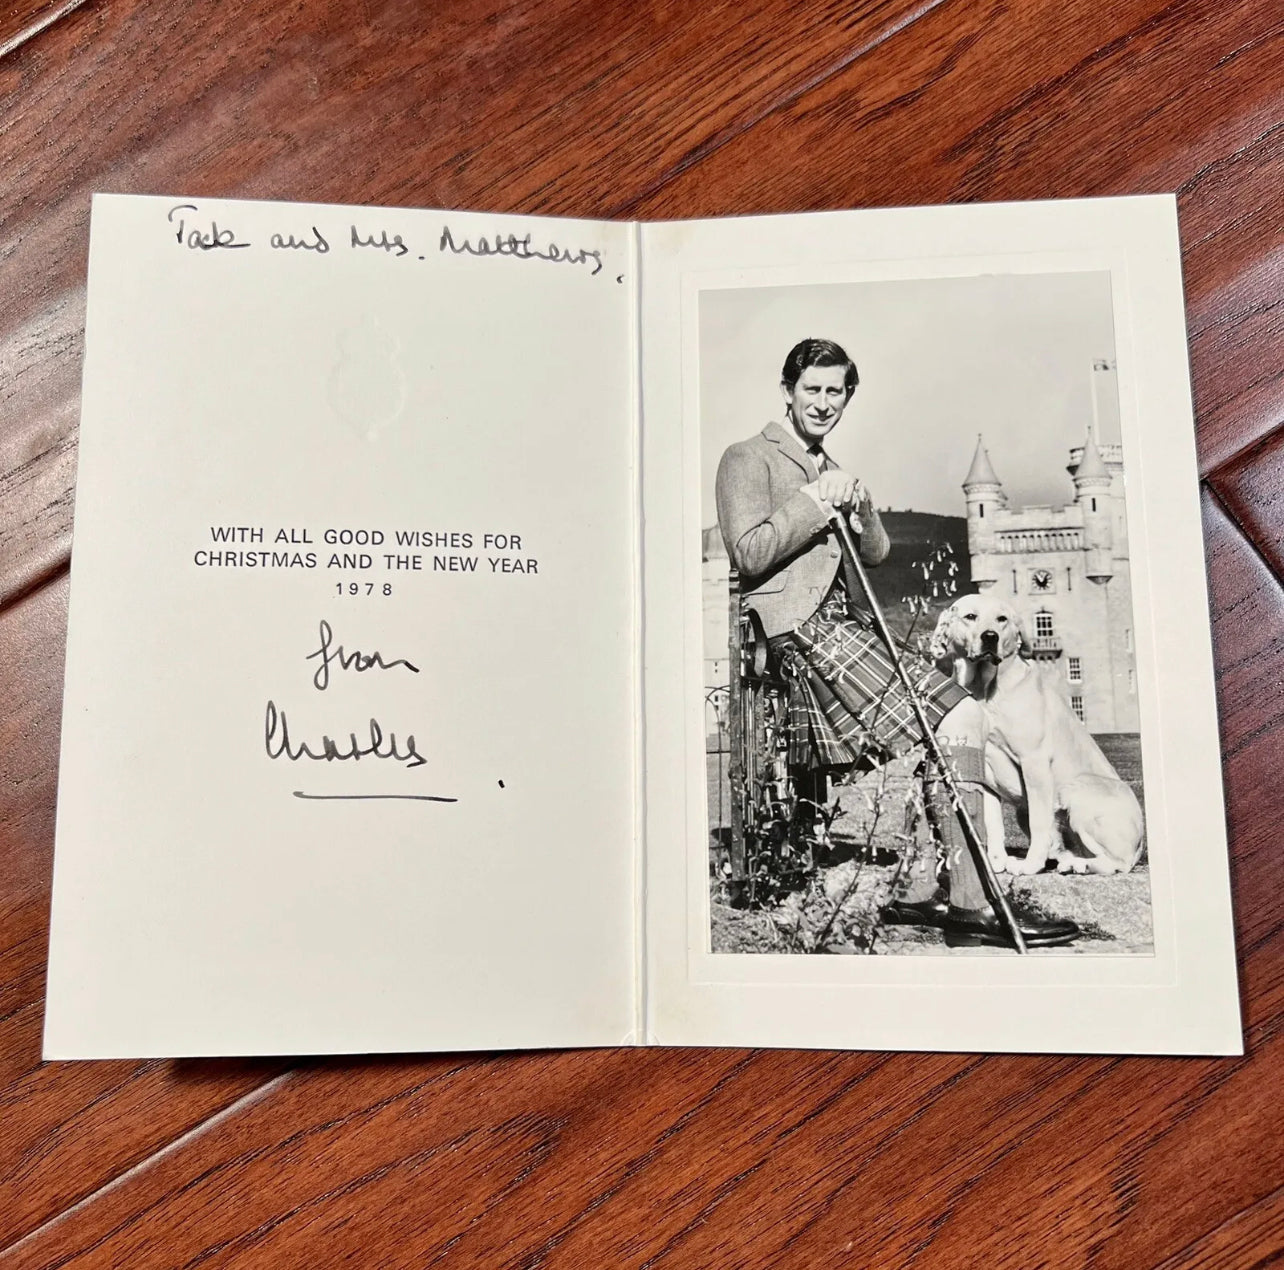 Jack and Mrs. Matthews,
WITH ALL GOOD WISHES FOR
CHRISTMAS AND THE NEW YEAR
1978
from
Charles